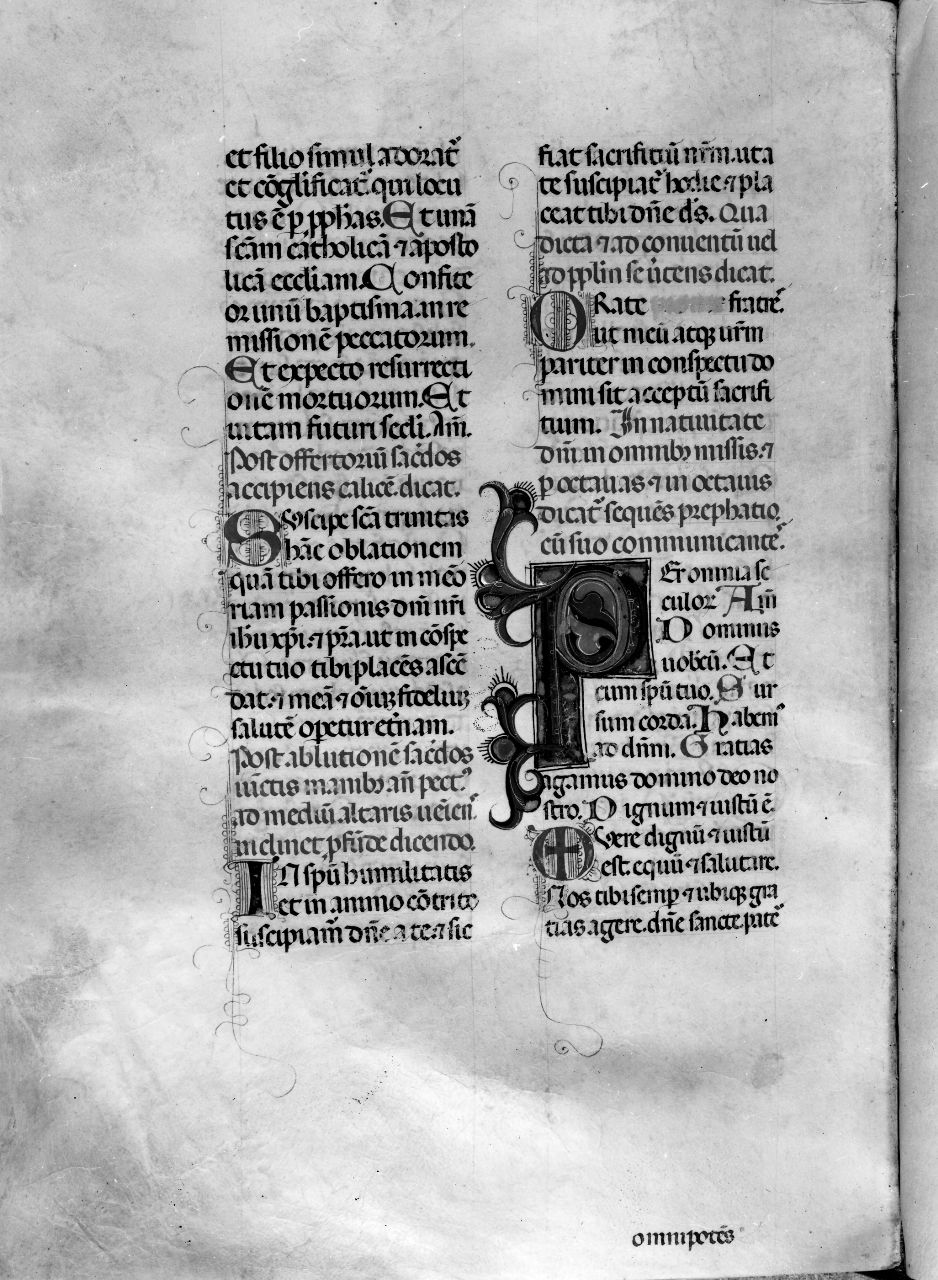 et filio simul adorat᷑
et cōglificat᷑. qui locu
tus ē ꝑ ꝓph̄as. Et unā
scām catholicā ⁊ aposto
licā eccl̄iam. Confite
or unū baptisma in re
missionē peccatorum.
Et expecto resurrecti
onē mortuorum. Et
uitam futuri seculi. Am̄.
Post offertoriū sac̄dos
accipiens calicē. dicat.
Suscipe scā trinitas
hāc oblationem
quā tibi offero in mēo
riam passionis dn̄i nr̄i
ih̄u xp̄i. ⁊ pr̄a. ut in cōspe
ctu tuo tibi placēs ascē
dat. ⁊ meā ⁊ oīuꝫ fideliuꝫ
salutē opetur et̄nam.
Post ablutionē sac̄dos
iūctis manibꝰ an̄ pect᷒
ad mediū altaris ueīen᷒
inclinet ꝓfūde dicendo.
IN spū humilitatis
et in animo cōtrito
suscipiam᷒ dn̄e a te. ⁊ sic
fiat sacrifitiū nr̄m. ut a
te suscipiat᷑ hodie. ⁊ pla
ceat tibi dn̄e ds̄. Qua
dicta ⁊ ad conuentū uel
ad ppl̄m se ūtens dicat.
ORate fratre᷒
ut meū atqꝫ ur̄m
pariter in conspectu do
mini sit acceptū sacrifi
tium. In natiuitate
dn̄i in omnibꝰ missis. ⁊
ꝑ octauas ⁊ in octauis
dicat᷑ sequēs prephatio
cū suo communicante᷒.
Per omnia se
culor᷒ Am̄
Dominus
uobcū. Et
cum spū tuo. Sur
sum corda. Habem᷒
ad dn̄m. Gratias
agamus domino deo no
stro. Dignum ⁊ iustū ē.
Vere dignū ⁊ iustū
est. equū ⁊ salutare.
Nos tibi semꝑ ⁊ ubiqꝫ gra
tias agere. dn̄e sancte. patē
omnipotēs